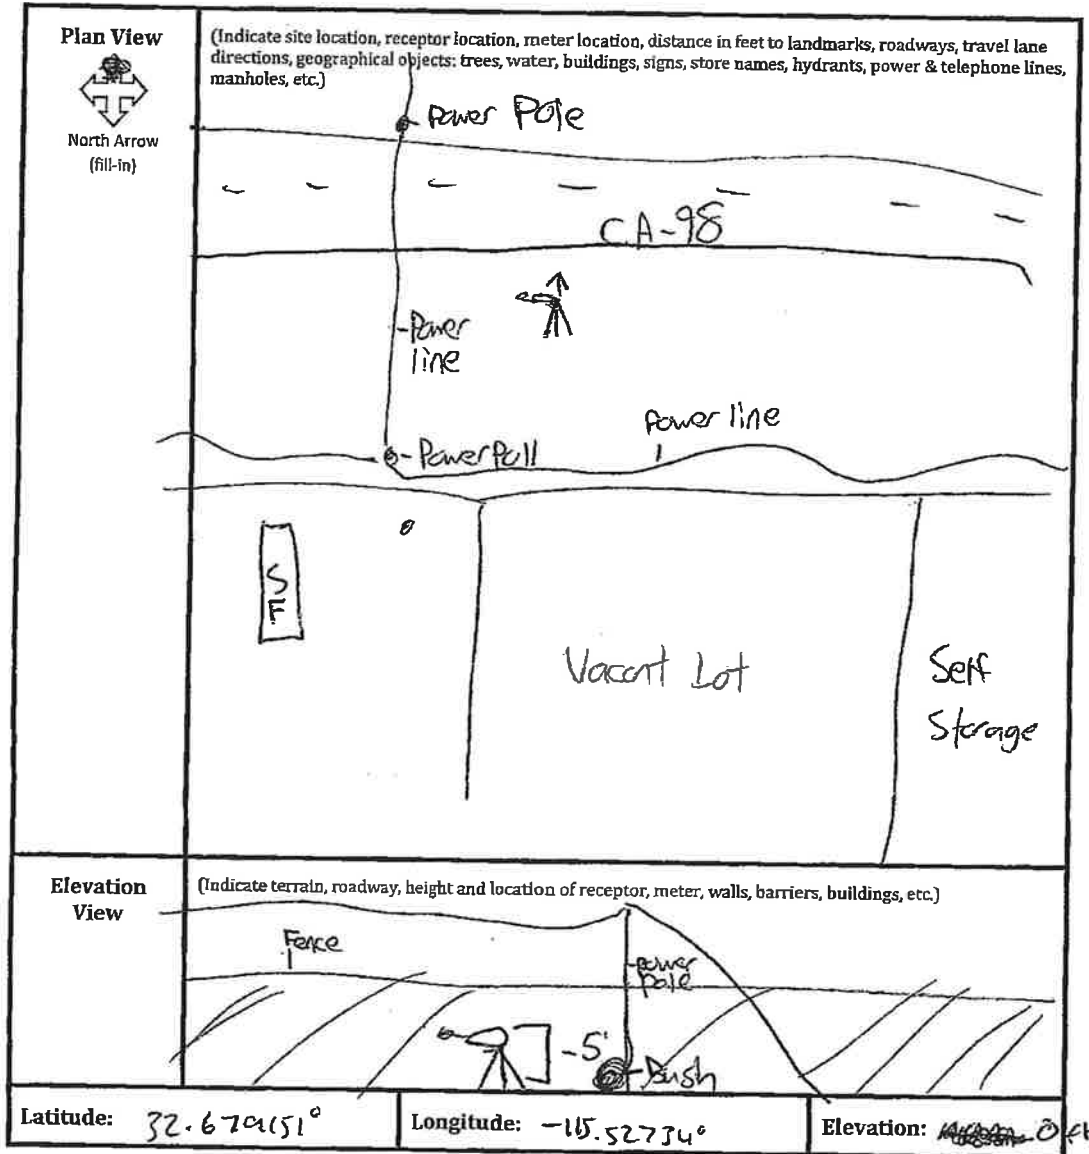 Plan View
North Arrow
(fill-in)
(Indicate site location, receptor location, meter location, distance in feet to landmarks, roadways, travel lane
directions, geographical objects: trees, water, buildings, signs, store names, hydrants, power & telephone lines,
manholes, etc.)
Power Pole
CA-98
Power
line
Power line
Power Poll
S.F.
Vacant Lot
Self
Storage
Elevation
View
(Indicate terrain, roadway, height and location of receptor, meter, walls, barriers, buildings, etc.)
Fence
power
pole
5'
Bush
Latitude: 32.679151°
Longitude: -115.52734°
Elevation: 0 ft